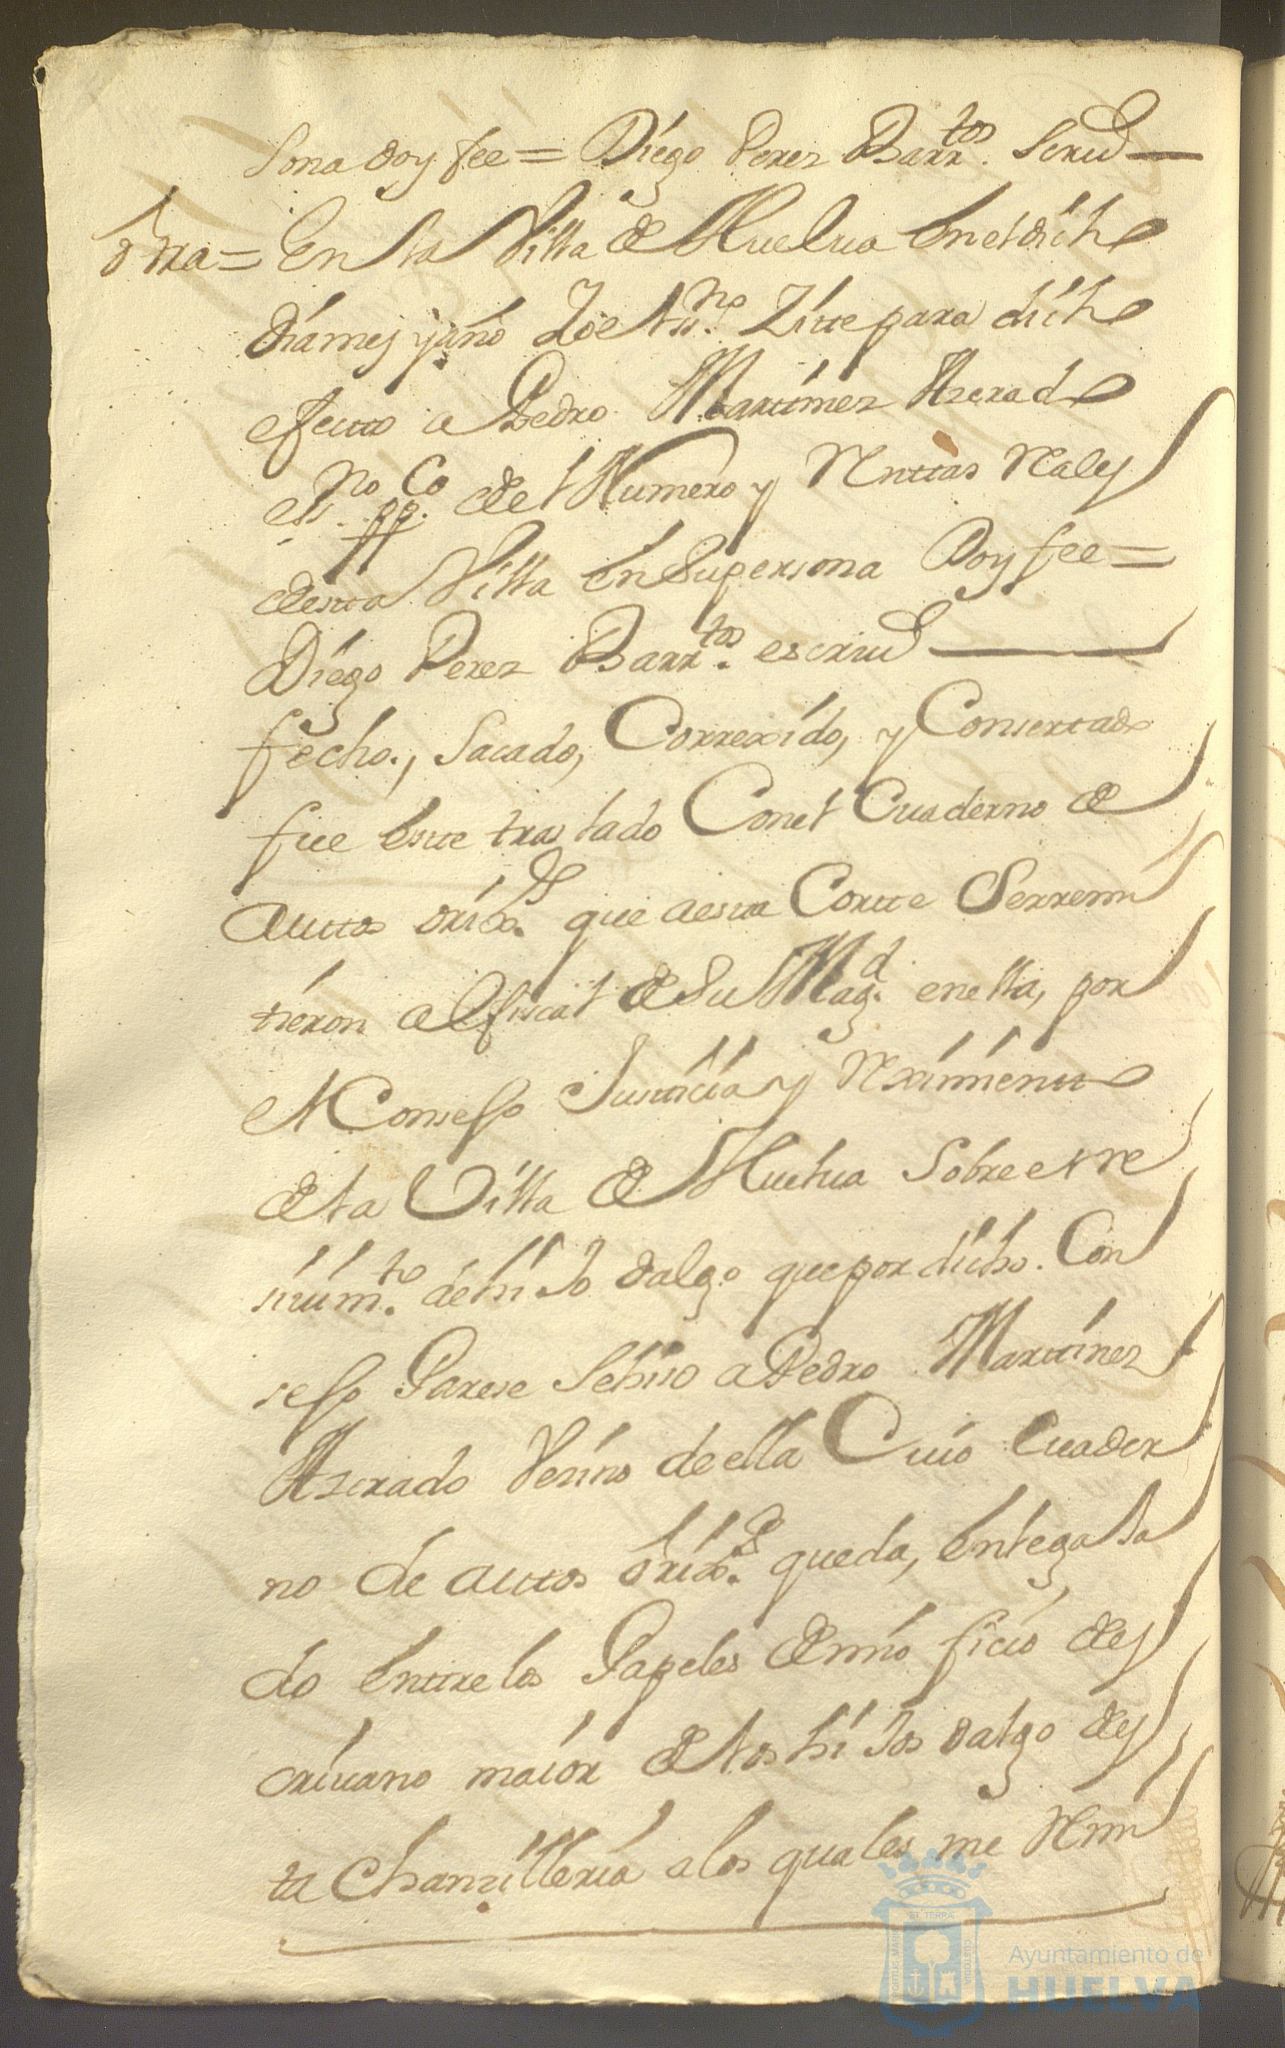 sona doy fee = Diego Perez Barr.tos Scriu.
otra = En la Villa de Huelua en el dicho
dia mes y año Yo el ss.no Zite para dicho
efecto a Pedro Martinez Azcrado
ess.no pp.co del Numero y Renttas Rales
desta Villa en Su persona Doy fee =
Diego Perez Barr.tos escriu.
fecho, Sacado, Correxido, y Consertado
fue este traslado Con el Cuaderno de
Auttos orix.s que a esta Cortte Se rremi
tieron al fiscal de Su Mag.d en ella, por
el Consejo Justicia y Reximiento
de la Villa de Huelua Sobre el re
siuim.to de hiJo dalgo que por dicho Con
sejo Parese Se hiso a Pedro Martinez
Azcrado Vesino de ella Cuio Cuader
no de auttos orix.s queda, entegaJa
do entre los Papeles de mi oficio de es
criuano maior de los hiJos dalgo des
ta Chanzilleria a los quales me Rmi
Ayuntamiento de
HUELVA